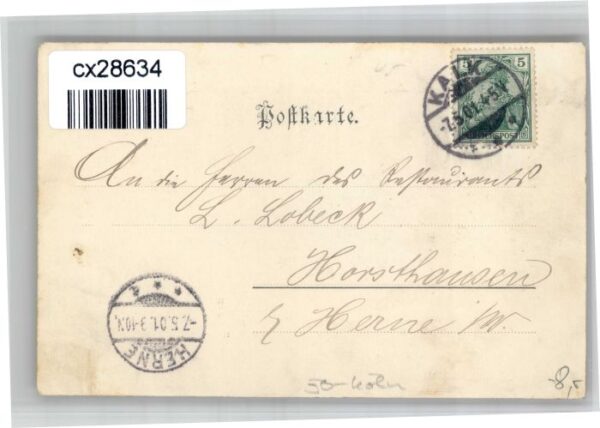 cx28634
5
REICHSPOST
KALK
-7.5.01. 4-5N
Postkarte.
An die Herren des Restaurants
L. Lobeck
Horsthausen
Herne i/W.
-7.5.01. 3-10N.
HERNE
50-Köln
-8,-